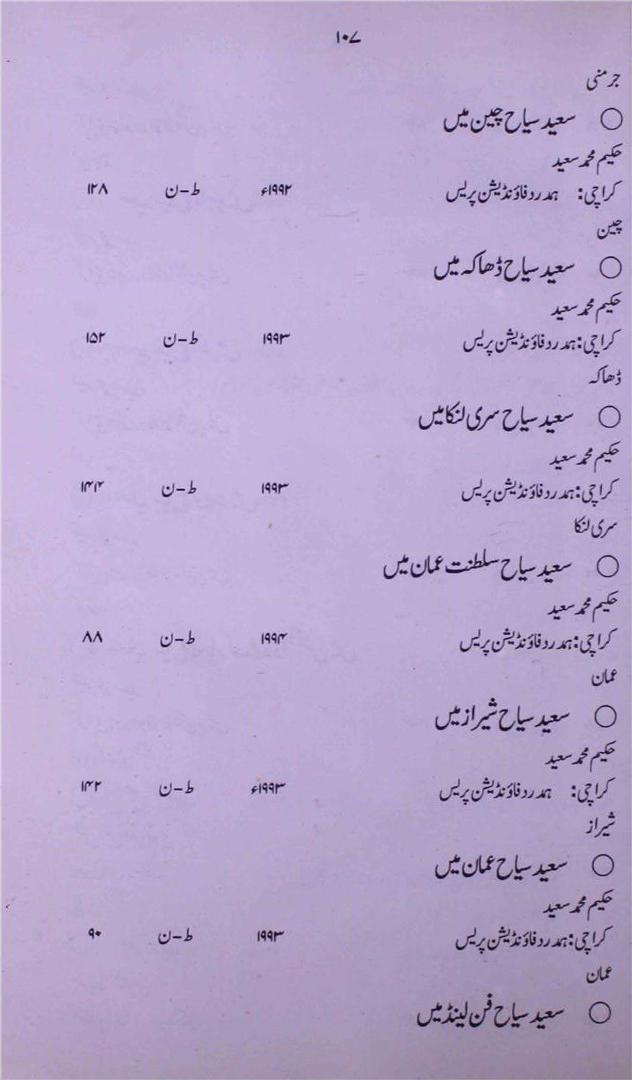 ۱۰۷
جرمنی
○ سعید سیاح چین میں
حکیم محمد سعید
کراچی: ہمدرد فاؤنڈیشن پریس ۱۹۹۲ء ط-ن ۱۲۸
چین
○ سعید سیاح ڈھاکہ میں
حکیم محمد سعید
کراچی: ہمدرد فاؤنڈیشن پریس ۱۹۹۳ ط-ن ۱۵۲
ڈھاکہ
○ سعید سیاح سری لنکا میں
حکیم محمد سعید
کراچی: ہمدرد فاؤنڈیشن پریس ۱۹۹۳ ط-ن ۱۴۴
سری لنکا
○ سعید سیاح سلطنت عمان میں
حکیم محمد سعید
کراچی: ہمدرد فاؤنڈیشن پریس ۱۹۹۴ ط-ن ۸۸
عمان
○ سعید سیاح شیراز میں
حکیم محمد سعید
کراچی: ہمدرد فاؤنڈیشن پریس ۱۹۹۳ء ط-ن ۱۴۲
شیراز
○ سعید سیاح عمان میں
حکیم محمد سعید
کراچی: ہمدرد فاؤنڈیشن پریس ۱۹۹۳ ط-ن ۹۰
عمان
○ سعید سیاح فن لینڈ میں